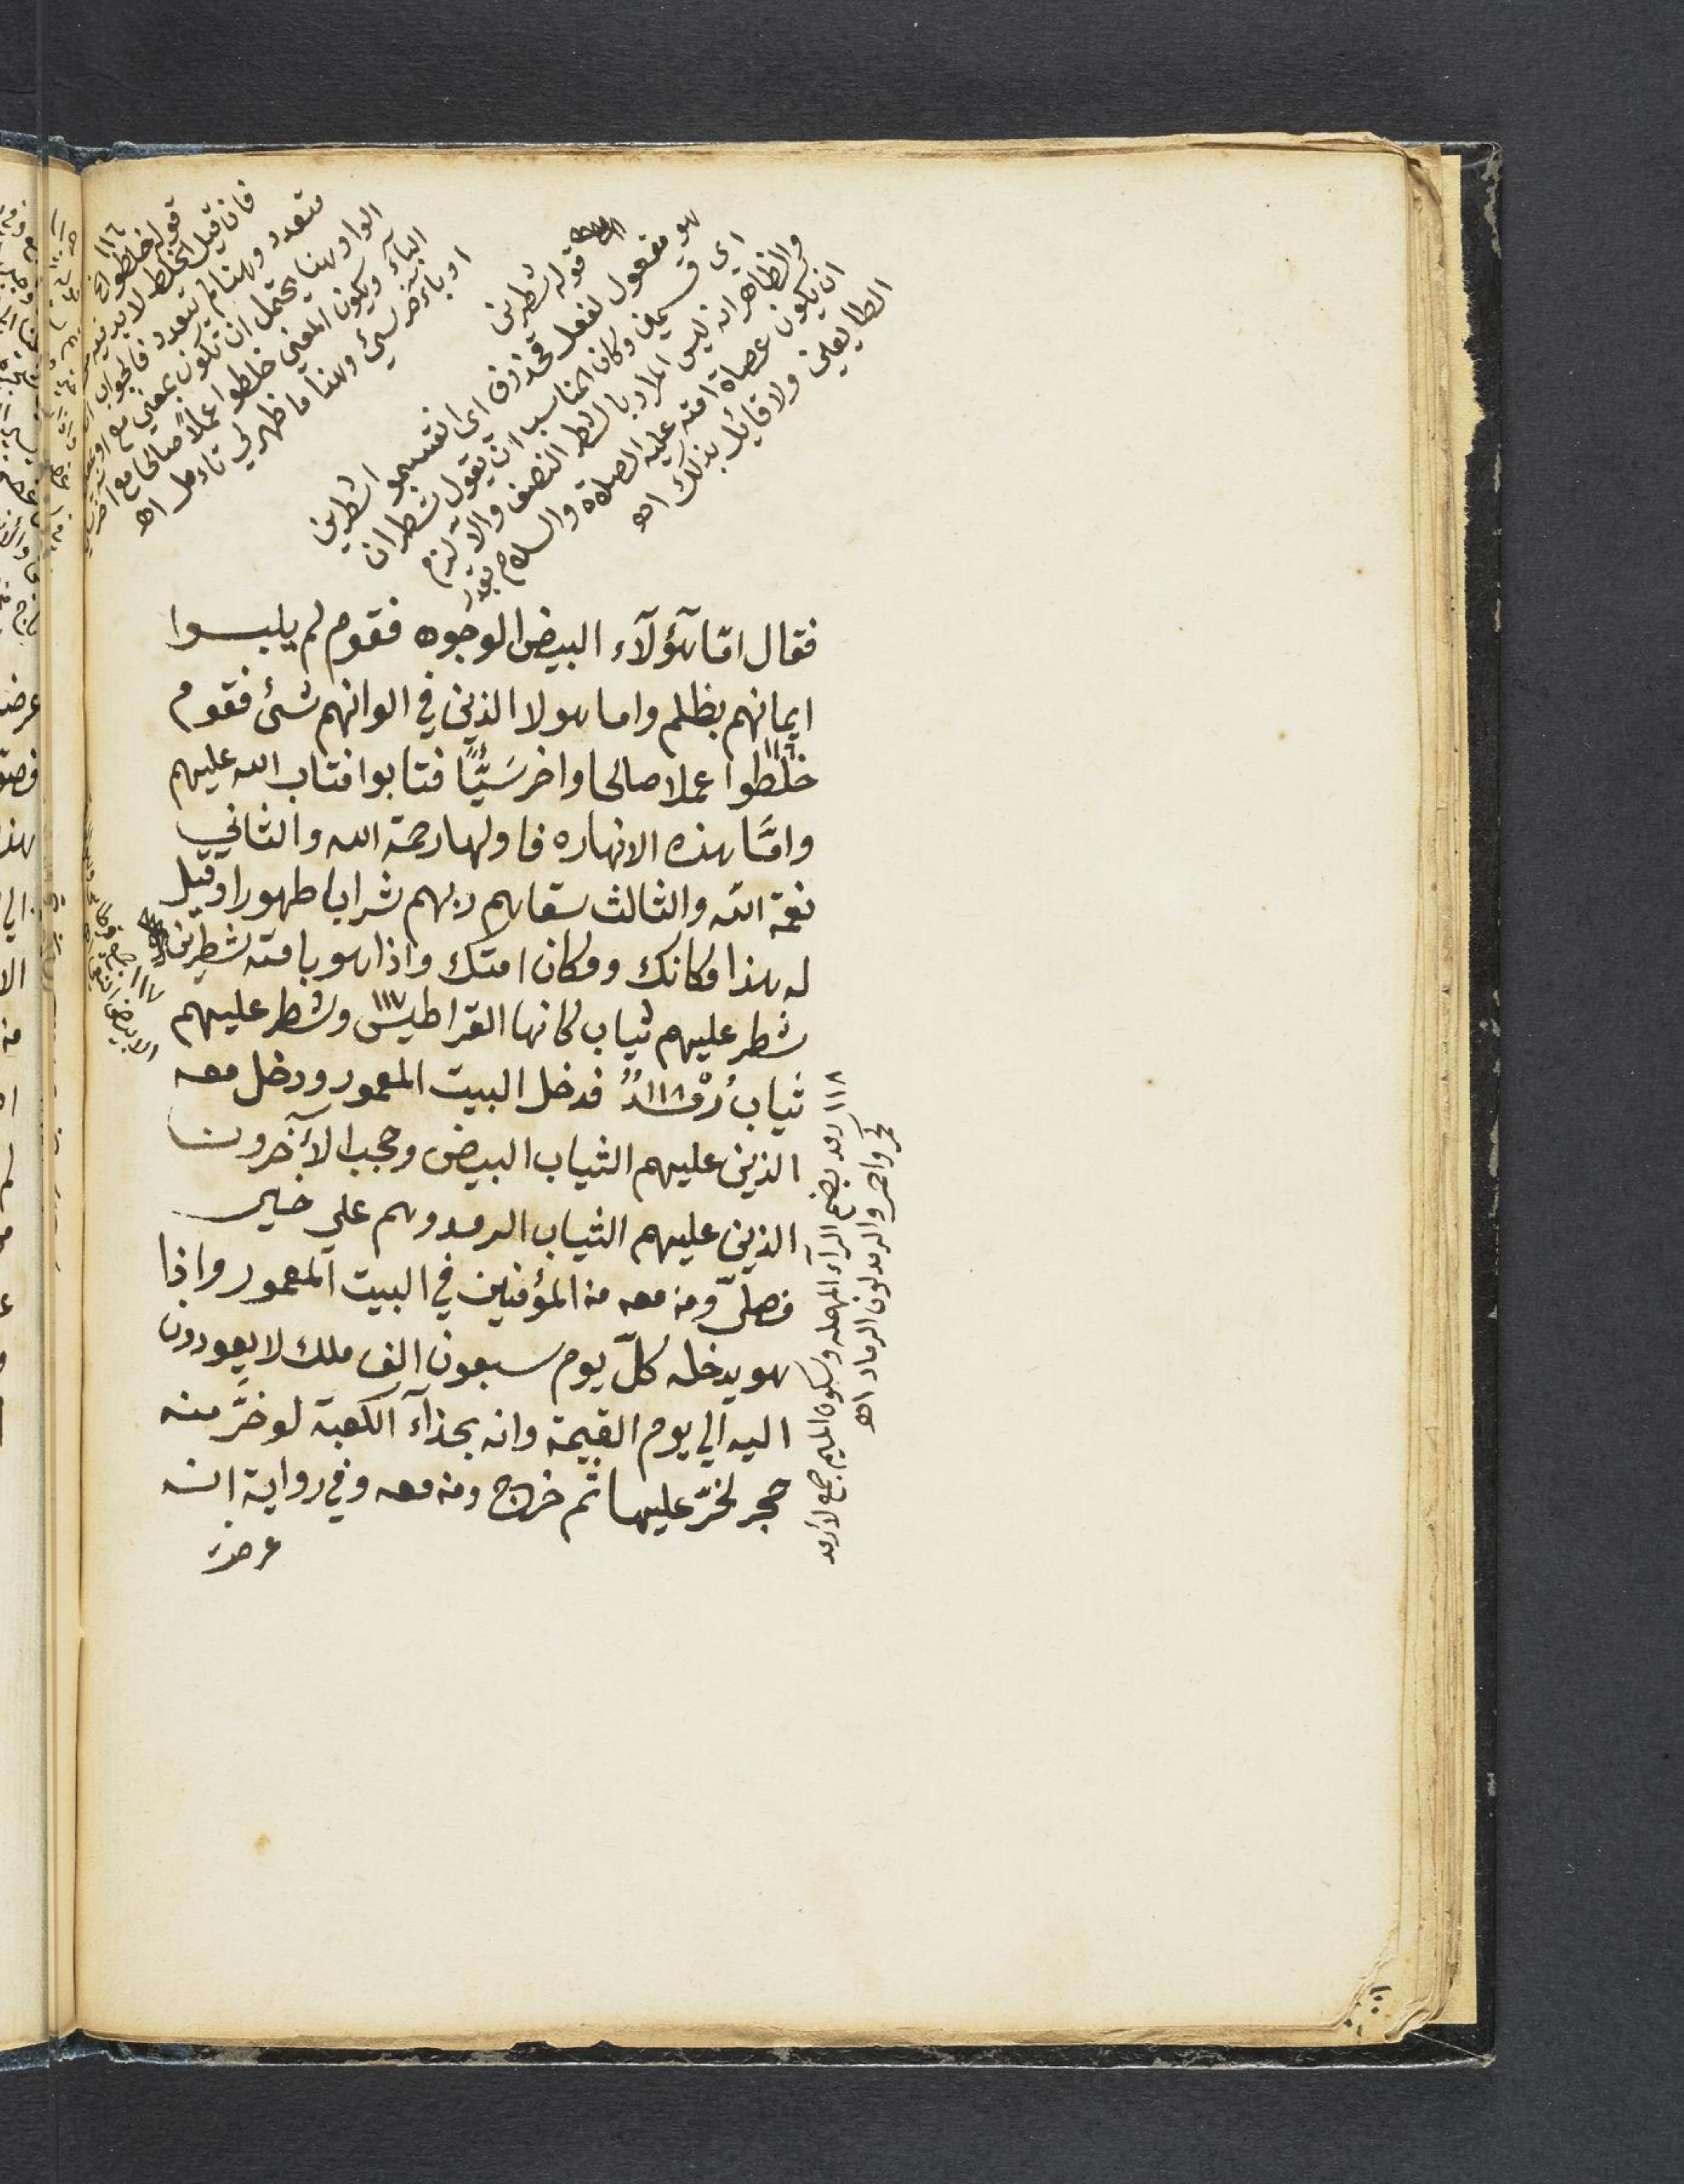 ١١٦
قوله خلطوا الخ
فان قيل الخلط لا بد فيه من
متعدد وهنا لم يتعدد فالجواب ان
الواو هنا يحتمل ان تكون بمعني مع او بمعني
البآء ويكون المعني خلطوا عملاً صالحا مع اخر سيئ
او بآخر سيئ وهنا ما ظهر لي تاءمل اهـ
قوله شطرين
هو مفعول لفعل محذوف اى انقسموا شطرين
اى قسمين وكان المناسب ان يقول شطران
والظاهر انه ليس المراد بالشطر النصف والا لزم
ان يكون عصاة امته عليه الصلاة والسلام بقدر
الطايعين ولا قايل بذلك اهـ
فقال امّا هٓؤلآء البيض الوجوه فقوم لم يلبسوا
ايمانهم بظلم واما هولا الذين في الوانهم شئ فقوم
خلطوا ١١٦ عملا صالحا واخر سَيِّئًا فتابوا فتاب الله عليهم
وامَّا هذه الانهاره فاولها رحمة الله والثاني
نعمة الله والثالث سقاهم ربهم شرابا طهورا وقيل
له هذا مكانك ومكان امتك واذا هو بامته شطرين
شطر عليهم ثياب كانها القراطيس ١١٧ وشطر عليهم
ثياب رُمْدٌ ١١٨ فدخل البيت المعمور ودخل معه
الذين عليهم الثياب البيض وحجب الأٓخرون
الذين عليهم الثياب الرمد وهم علي خير
فصلّى ومن معه من المؤمنين في البيت المعمور واذا
هو يدخله كلّ يوم سبعون الف ملك لا يعودون
اليه الي يوم القيمة وانه بحذآء الكعبة لو خرَّ منه
حجر لخرّ عليها ثم خرج ومن معه وفي رواية انه
عرضت
١١٧
١١٨ رمد بضم الرآء المهمله وسكون الميم جمع لارمد
كحمر واحمر والرمد لون الرماد اهـ